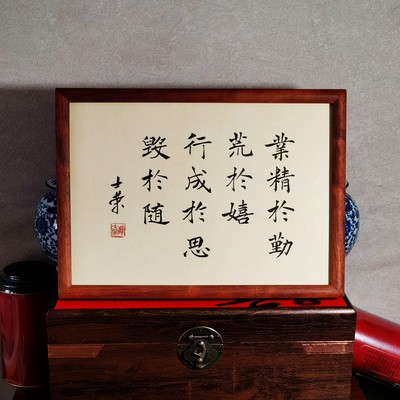 業精於勤
荒於嬉
行成於思
毀於隨
士榮